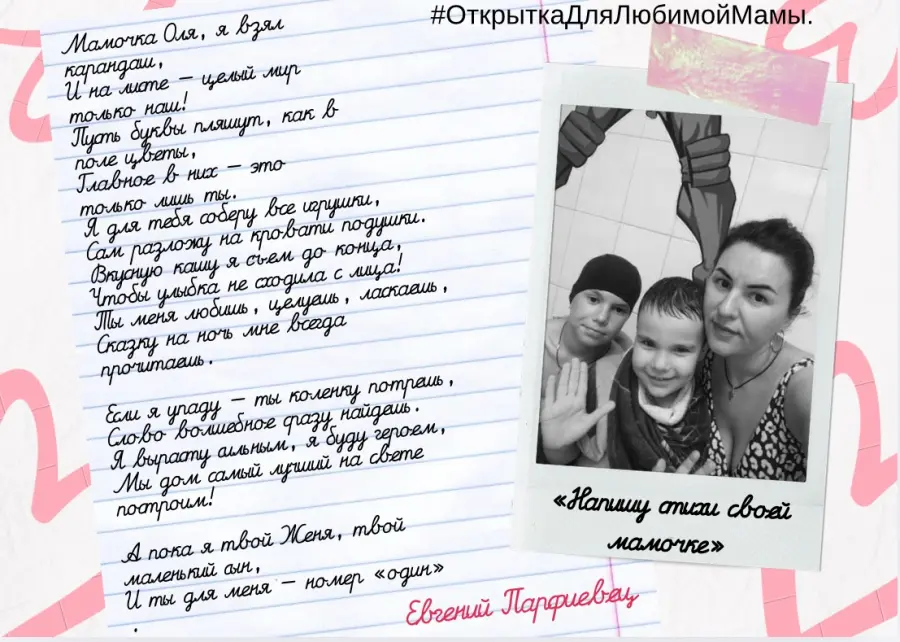 #ОткрыткаДляЛюбимойМамы.
Мамочка Оля, я взял
карандаш,
И на листе – целый мир
только наш!
Пусть буквы пляшут, как в
поле цветы,
Главное в них – это
только лишь ты.
Я для тебя соберу все игрушки,
Сам разложу на кровати подушки.
Вкусную кашу я съем до конца,
Чтобы улыбка не сходила с лица!
Ты меня любишь, целуешь, ласкаешь,
Сказку на ночь мне всегда
прочитаешь.
Если я упаду – ты коленку потрёшь,
Слово волшебное сразу найдёшь.
Я вырасту сильным, я буду героем,
Мы дом самый лучший на свете
построим!
А пока я твой Женя, твой
маленький сын,
И ты для меня – номер «один»
.
Евгений Парфиевец
«Напишу стихи своей
мамочке»